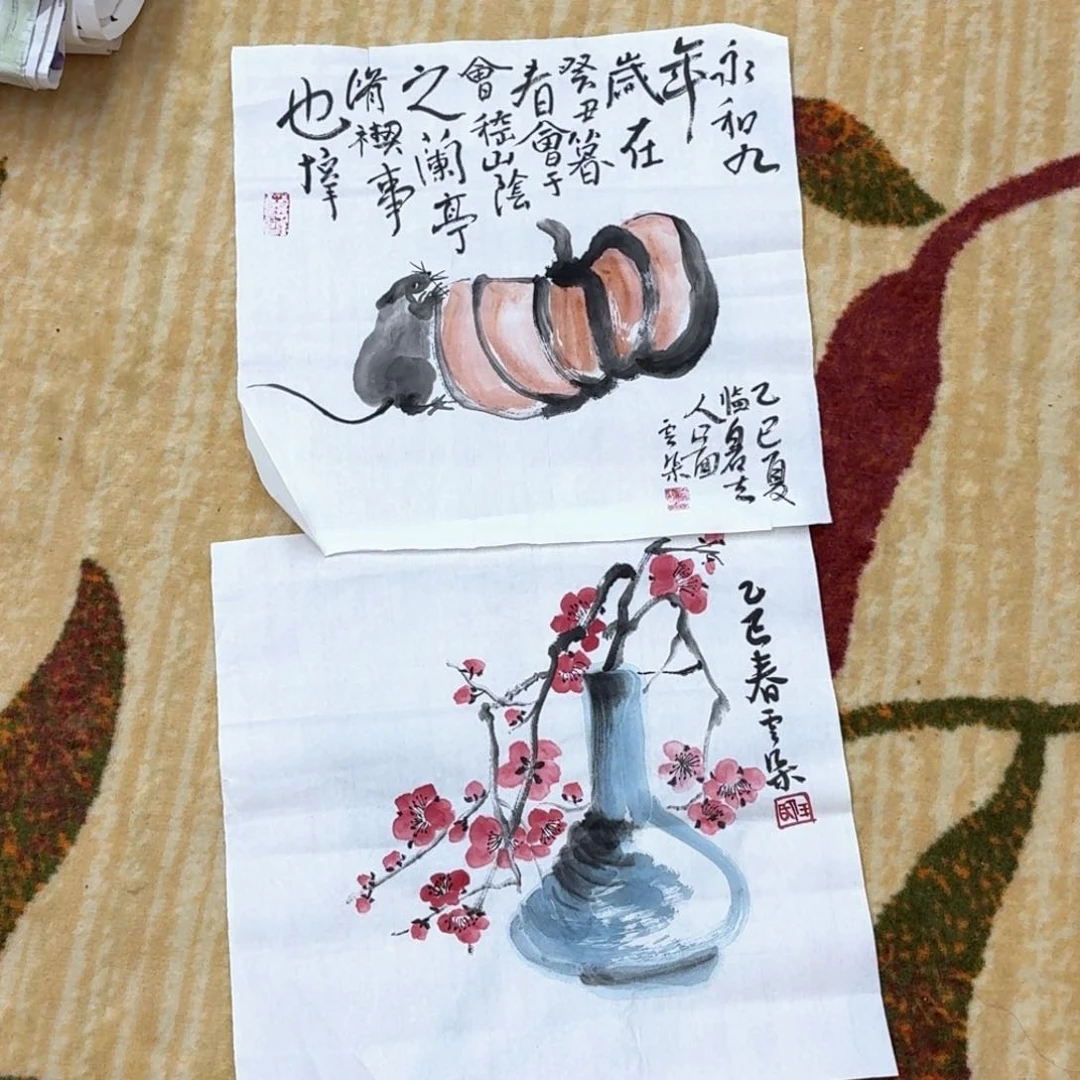 永和九
年
歲在
癸丑暮
春會于
會稽山陰
之蘭亭
脩禊事
也
乙巳夏
临白石老
人画
雲朵
乙巳春雲朵